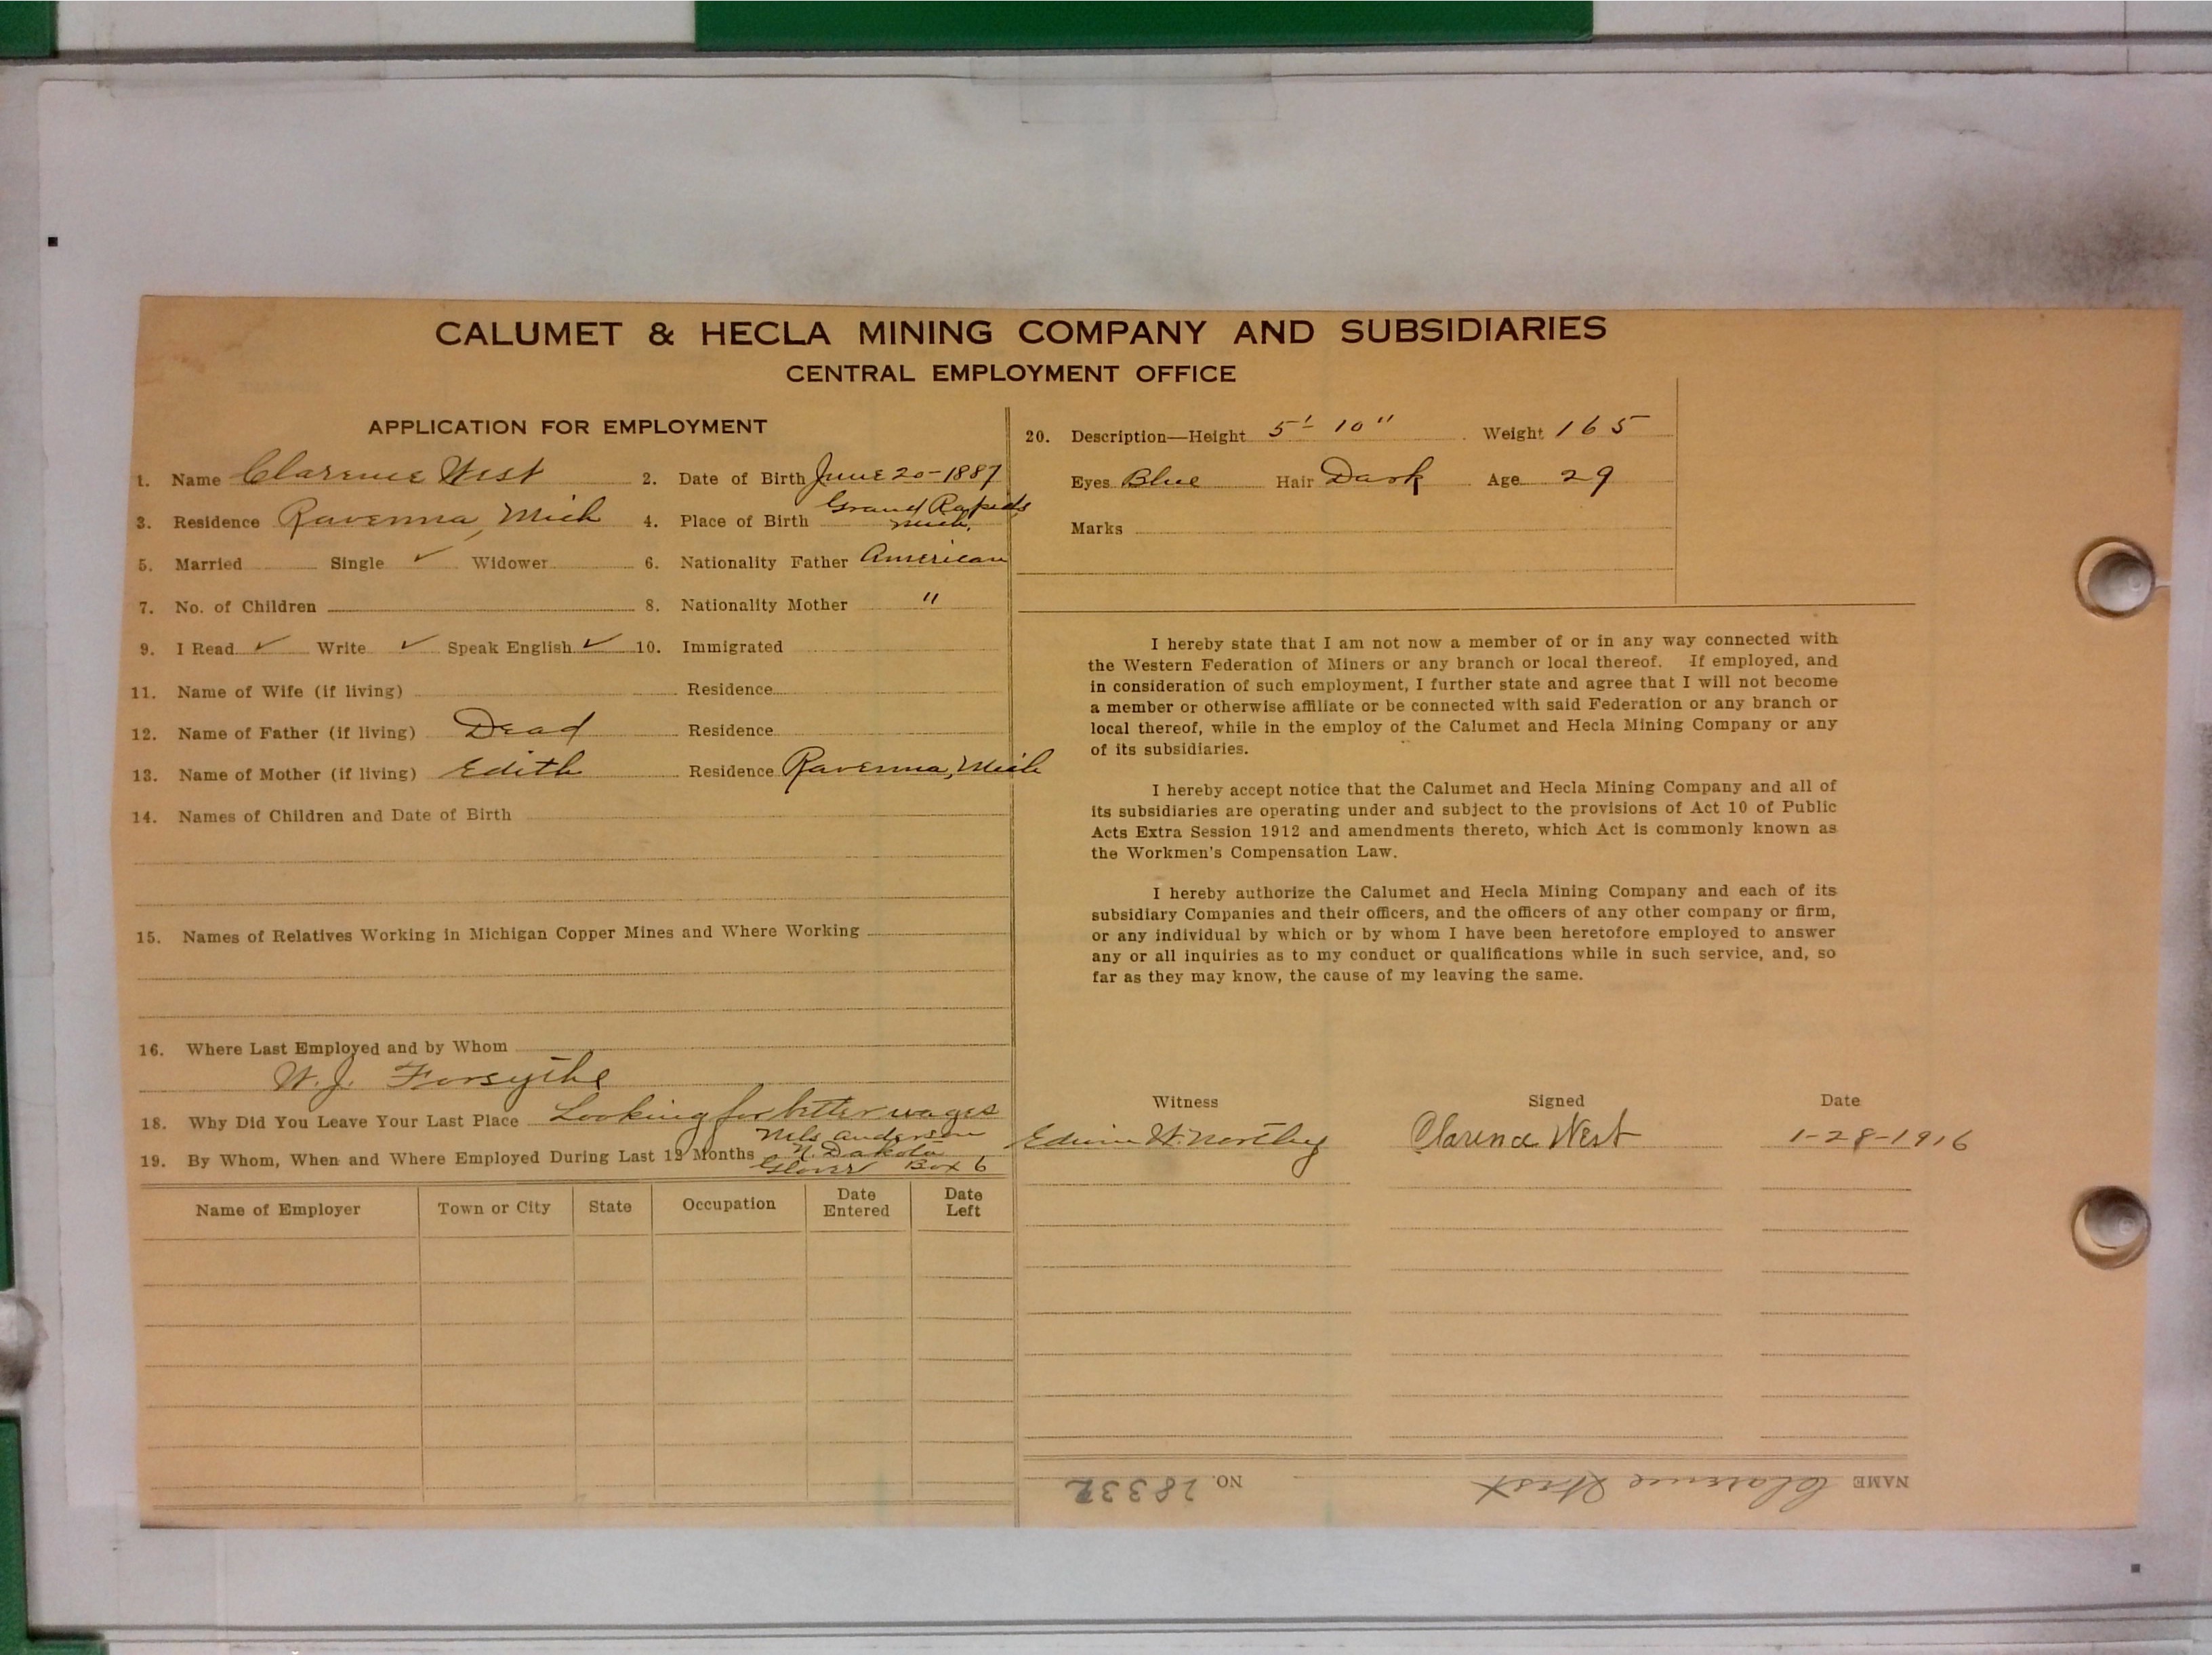 CALUMET & HECLA MINING COMPANY AND SUBSIDIARIES
CENTRAL EMPLOYMENT OFFICE
APPLICATION FOR EMPLOYMENT
1. Name Clarence West 2. Date of Birth June 20-1887
3. Residence Ravenna, Mich 4. Place of Birth Grand Rapids Mich.
5. Married Single ✓ Widower 6. Nationality Father American
7. No. of Children 8. Nationality Mother "
9. I Read ✓ Write ✓ Speak English ✓ 10. Immigrated
11. Name of Wife (if living) Residence
12. Name of Father (if living) Dead Residence
13. Name of Mother (if living) Edith Residence Ravenna, Mich
14. Names of Children and Date of Birth
15. Names of Relatives Working in Michigan Copper Mines and Where Working
16. Where Last Employed and by Whom
W. J. Forsythe
18. Why Did You Leave Your Last Place Looking for better wages
Nels Anderson
19. By Whom, When and Where Employed During Last 12 Months N. Dakota
Glover Box 6
Name of Employer Town or City State Occupation Date Entered Date Left
20. Description—Height 5' 10" Weight 165
Eyes Blue Hair Dark Age 29
Marks
I hereby state that I am not now a member of or in any way connected with
the Western Federation of Miners or any branch or local thereof. If employed, and
in consideration of such employment, I further state and agree that I will not become
a member or otherwise affiliate or be connected with said Federation or any branch or
local thereof, while in the employ of the Calumet and Hecla Mining Company or any
of its subsidiaries.
I hereby accept notice that the Calumet and Hecla Mining Company and all of
its subsidiaries are operating under and subject to the provisions of Act 10 of Public
Acts Extra Session 1912 and amendments thereto, which Act is commonly known as
the Workmen's Compensation Law.
I hereby authorize the Calumet and Hecla Mining Company and each of its
subsidiary Companies and their officers, and the officers of any other company or firm,
or any individual by which or by whom I have been heretofore employed to answer
any or all inquiries as to my conduct or qualifications while in such service, and, so
far as they may know, the cause of my leaving the same.
Witness Signed Date
Edwin W. Northey Clarence West 1-28-1916
NAME Clarence West NO. 28332